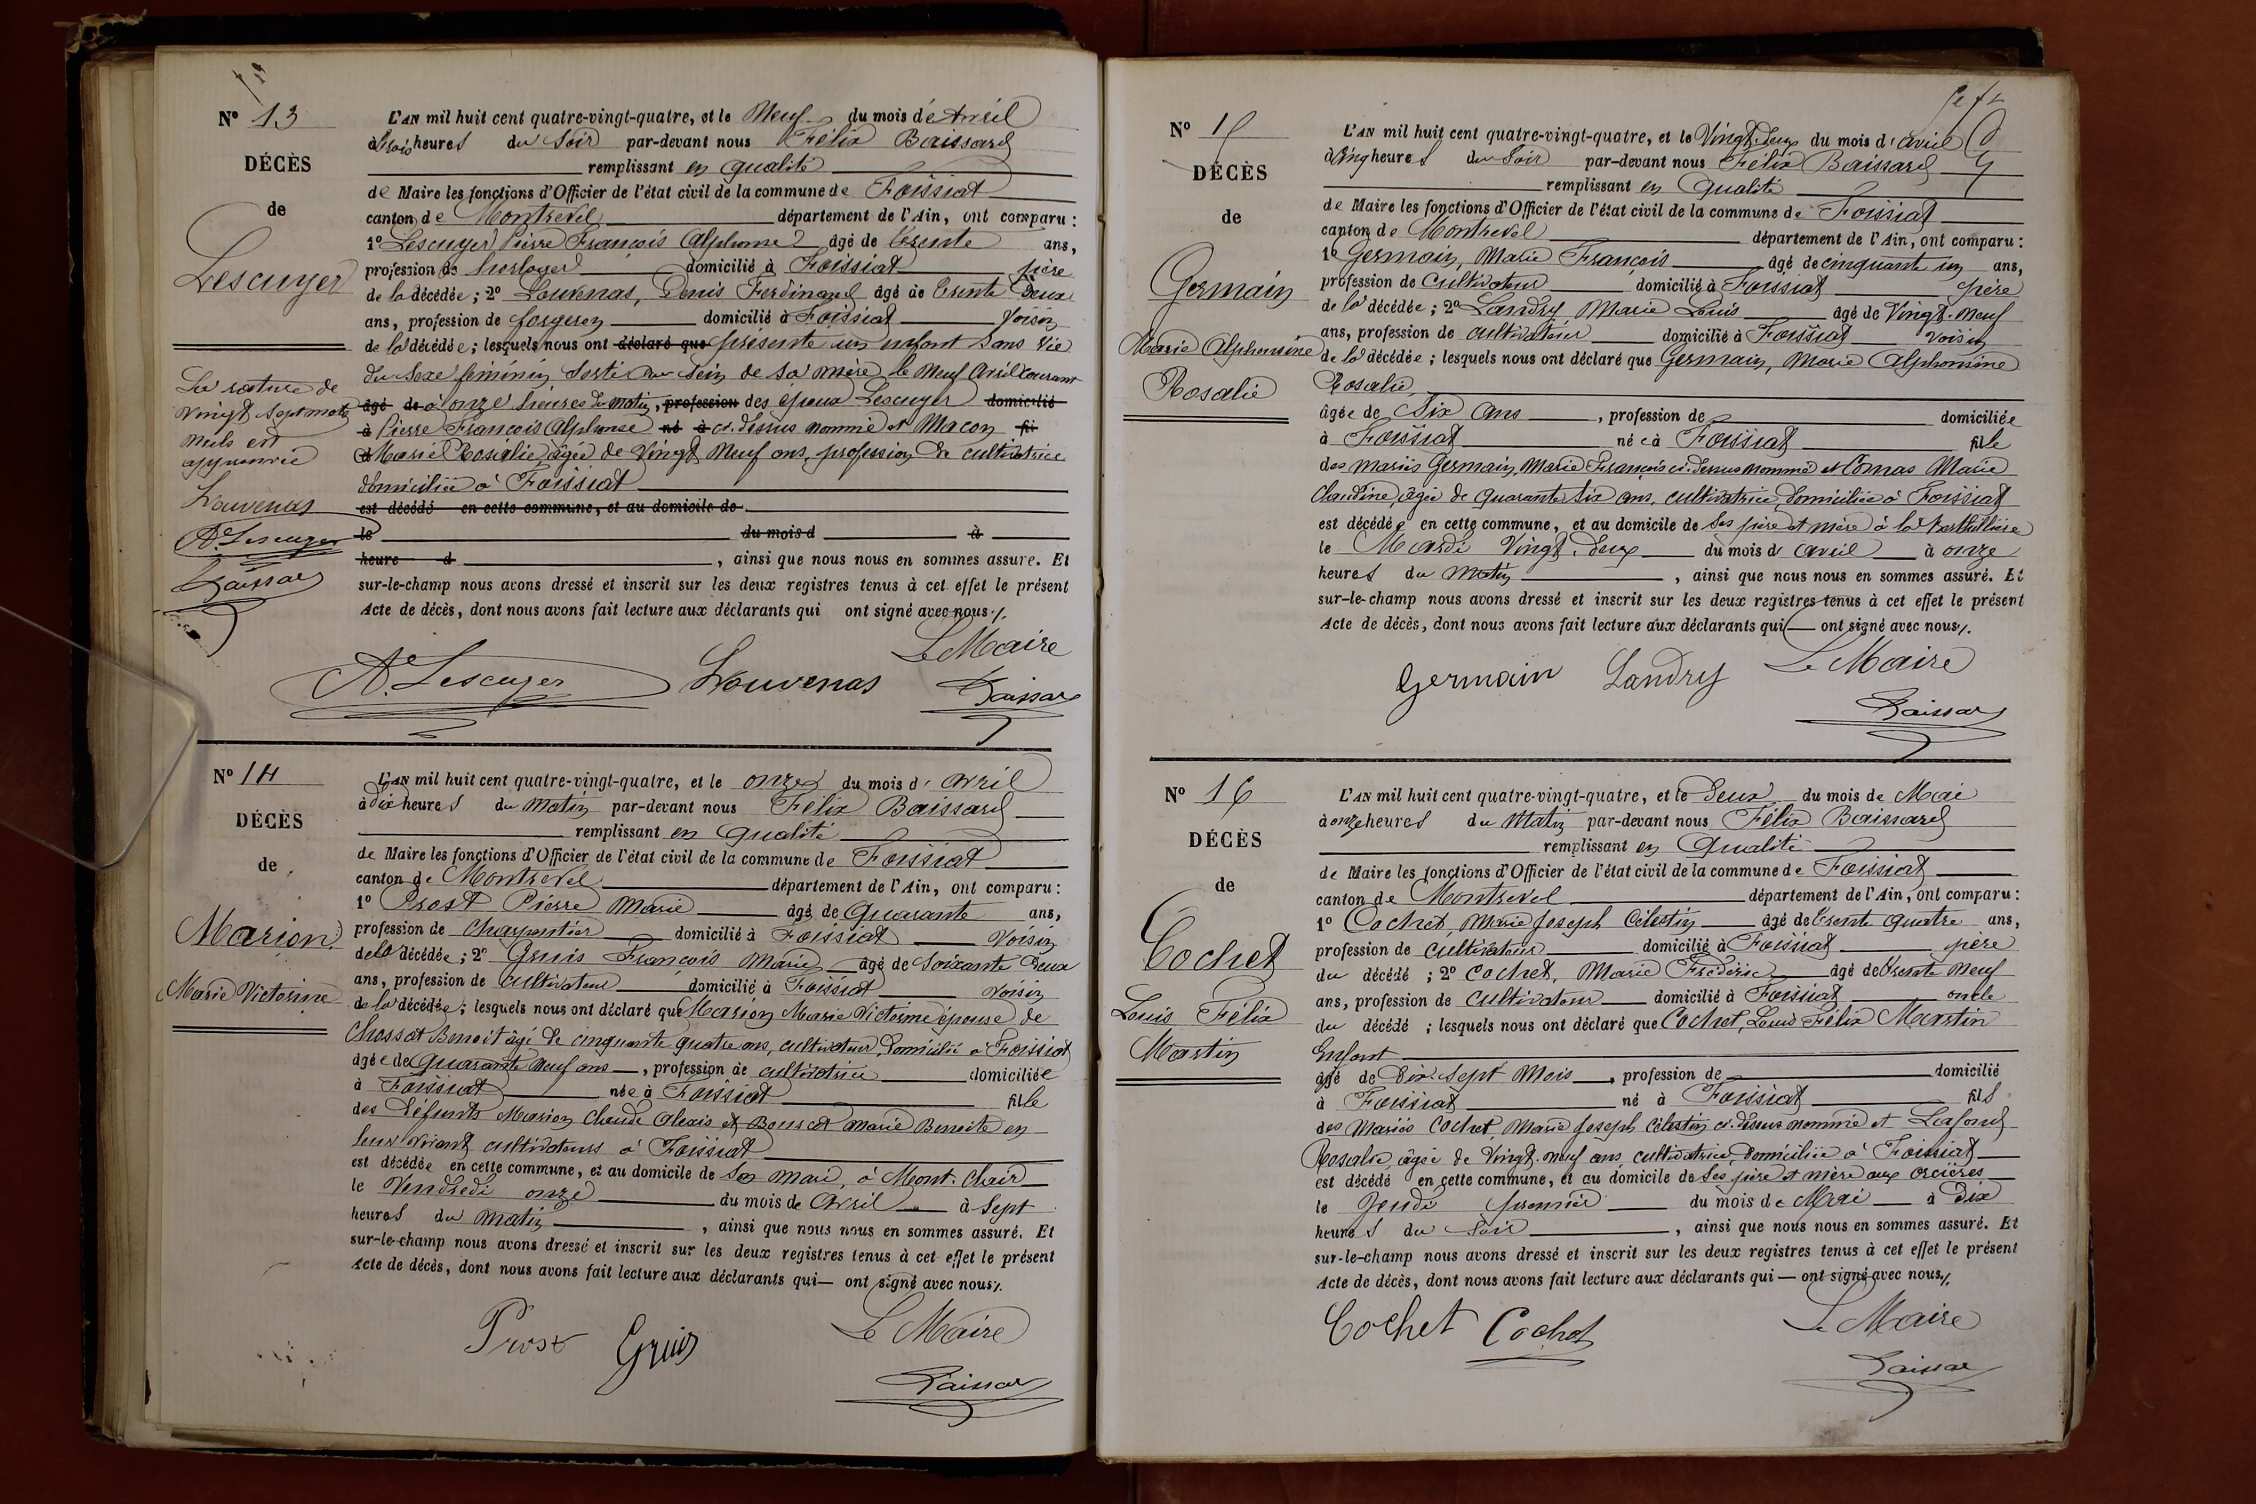 Nº 13
DÉCÈS
de
Lescuyer
La rature de
vingt sept mots
nuls est
approuvée
Louvenas
A. Lescuyer
Baissard
L'AN mil huit cent quatre-vingt-quatre, et le Neuf du mois d'Avril
à trois heures du Soir par-devant nous Félix Baissard
remplissant en qualité
de Maire les fonctions d'Officier de l'état civil de la commune de Foissiat
canton de Montrevel département de l'Ain, ont comparu :
1º Lescuyer Pierre François Alphonse âgé de trente ans,
profession de horloger domicilié à Foissiat père
de la décédée ; 2º Louvenas, Denis Ferdinand âgé de trente deux
ans, profession de forgeron domicilié à Foissiat voisin
de la décédée ; lesquels nous ont déclaré que présenté un enfant sans vie
du sexe féminin sorti du sein de sa mère le neuf avril courant
âgé de à onze heures du matin, profession des époux Lescuyer domicilié
à Pierre François Alphonse né à ci-dessus nommé et Macon fil
d Marie Rosalie âgée de vingt neuf ans, profession de cultivatrice
domiciliée à Foissiat
est décédé en cette commune, et au domicile de
le du mois d à
heure d , ainsi que nous nous en sommes assuré. Et
sur-le-champ nous avons dressé et inscrit sur les deux registres tenus à cet effet le présent
Acte de décès, dont nous avons fait lecture aux déclarants qui ont signé avec nous./.
Le Maire
A. Lescuyer Louvenas Baissard
Nº 14
DÉCÈS
de
Marion
Marie Victorine
L'AN mil huit cent quatre-vingt-quatre, et le onze du mois d'avril
à dix heures du matin par-devant nous Félix Baissard
remplissant en qualité
de Maire les fonctions d'Officier de l'état civil de la commune de Foissiat
canton de Montrevel département de l'Ain, ont comparu :
1º Prost Pierre Marie âgé de Quarante ans,
profession de charpentier domicilié à Foissiat voisin
de la décédée ; 2º Gruis François Marie âgé de soixante deux
ans, profession de cultivateur domicilié à Foissiat voisin
de la décédée ; lesquels nous ont déclaré que Marion Marie Victorine épouse de
Chossat Benoit âgé de cinquante quatre ans, cultivateur, domicilié à Foissiat
âgée de quarante neuf ans, profession de cultivatrice domiciliée
à Foissiat née à Foissiat fille
des défunts Marion Claude Alexis et Bouscat Marie Benoite en
leur vivant cultivateurs à Foissiat
est décédée en cette commune, et au domicile de son mari, à Mont-Clair
le Vendredi onze du mois de Avril à sept
heures du matin , ainsi que nous nous en sommes assuré. Et
sur-le-champ nous avons dressé et inscrit sur les deux registres tenus à cet effet le présent
Acte de décès, dont nous avons fait lecture aux déclarants qui ont signé avec nous./.
Le Maire
Prost Gruis
Baissard
Nº 15
DÉCÈS
de
Germain
Marie Alphonsine
Rosalie
L'AN mil huit cent quatre-vingt-quatre, et le Vingt-deux du mois d'avril
à cinq heures du soir par-devant nous Félix Baissard
remplissant en Qualité
de Maire les fonctions d'Officier de l'état civil de la commune de Foissiat
canton de Montrevel département de l'Ain, ont comparu :
1º Germain, Marie François âgé de cinquante un ans,
profession de Cultivateur domicilié à Foissiat père
de la décédée ; 2º Landry Marie Louis âgé de Vingt-neuf
ans, profession de cultivateur domicilié à Foissiat voisin
de la décédée ; lesquels nous ont déclaré que Germain, Marie Alphonsine
Rosalie
âgée de Six ans , profession de domiciliée
à Foissiat née à Foissiat fille
des mariés Germain, Marie François ci-dessus nommé et Comas Marie
Claudine, âgée de quarante six ans, cultivatrice, domiciliée à Foissiat
est décédée en cette commune, et au domicile de ses père et mère à la Berthillière
le Mardi Vingt-deux du mois d'avril à onze
heures du Matin , ainsi que nous nous en sommes assuré. Et
sur-le-champ nous avons dressé et inscrit sur les deux registres tenus à cet effet le présent
Acte de décès, dont nous avons fait lecture aux déclarants qui ont signé avec nous./.
Germain Landry Le Maire
Baissard
Nº 16
DÉCÈS
de
Cochet
Louis Félix
Martin
L'AN mil huit cent quatre-vingt-quatre, et le deux du mois de Mai
à onze heures du Matin par-devant nous Félix Baissard
remplissant en Qualité
de Maire les fonctions d'Officier de l'état civil de la commune de Foissiat
canton de Montrevel département de l'Ain, ont comparu :
1º Cochet, Marie Joseph Célestin âgé de trente quatre ans,
profession de cultivateur domicilié à Foissiat père
du décédé ; 2º Cochet, Marie Frédéric âgé de trente neuf
ans, profession de cultivateur domicilié à Foissiat oncle
du décédé ; lesquels nous ont déclaré que Cochet, Louis Félix Martin
Enfant
âgé de Dix-Sept Mois , profession de domicilié
à Foissiat né à Foissiat fils
des Mariés Cochet, Marie Joseph Célestin ci-dessus nommé et Lafond
Rosalie, âgée de Vingt-neuf ans cultivatrice, domiciliée à Foissiat
est décédé en cette commune, et au domicile de ses père et mère aux Orcières
le Jeudi premier du mois de Mai à dix
heures du soir , ainsi que nous nous en sommes assuré. Et
sur-le-champ nous avons dressé et inscrit sur les deux registres tenus à cet effet le présent
Acte de décès, dont nous avons fait lecture aux déclarants qui ont signé avec nous./.
Cochet Cochet Le Maire
Baissard